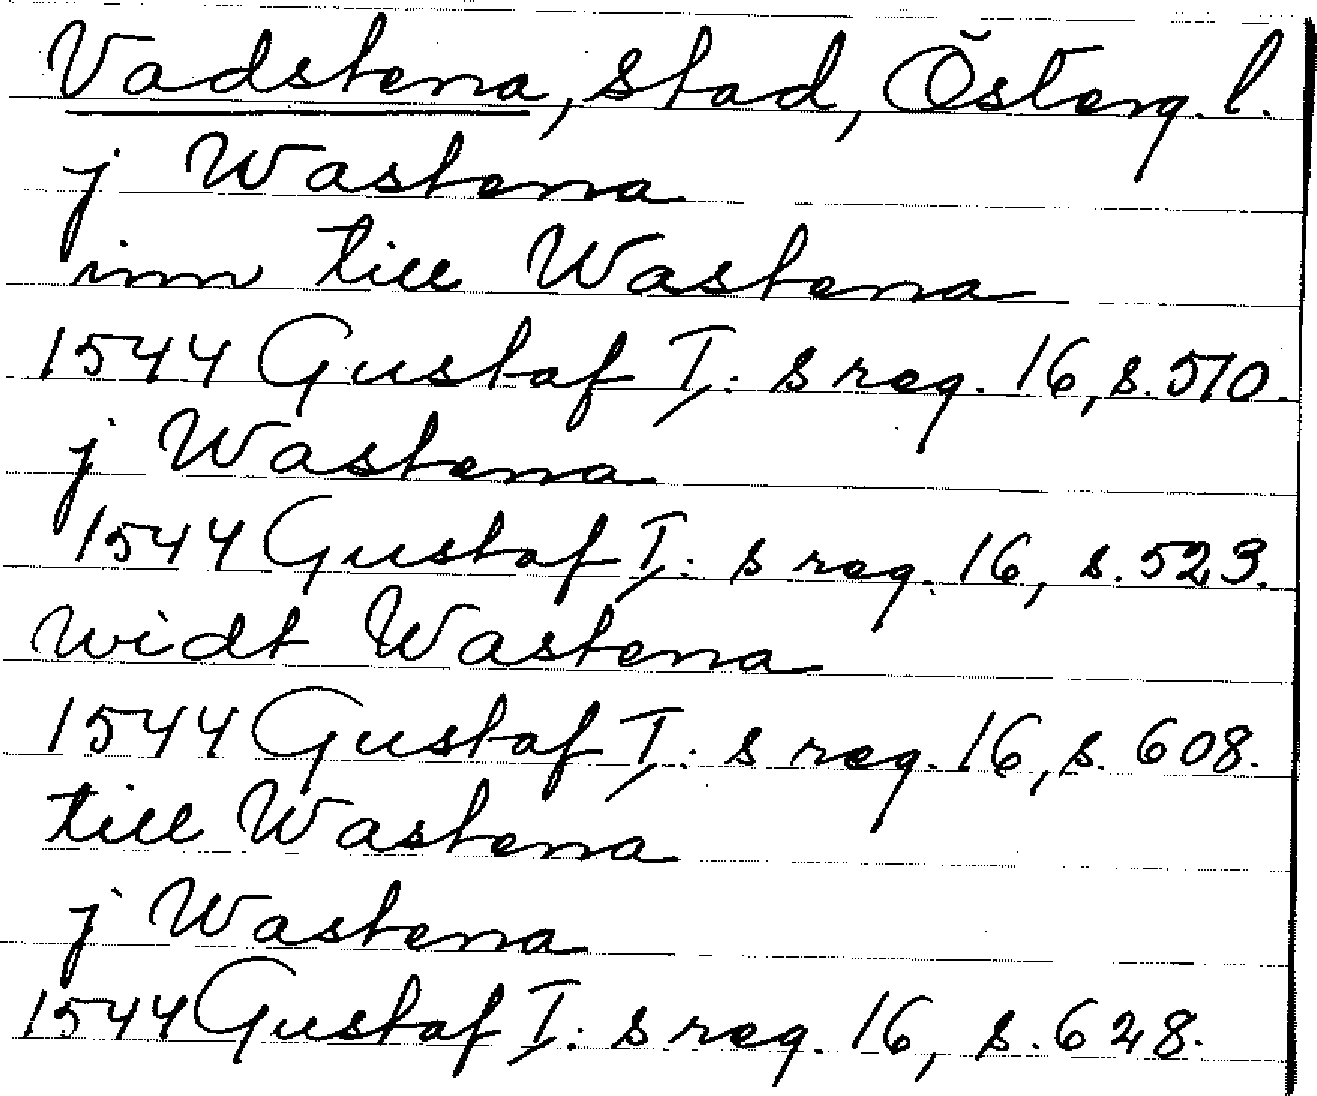 Vadstena, stad, Österg. l.
j Wastena
inn till Wastena
1544 Gustaf I: s reg. 16, s. 510.
j Wastena
1544 Gustaf I: s reg. 16, s. 523.
widt Wastena
1544 Gustaf I: s reg. 16, s. 608.
till Wastena
j Wastena
1544 Gustaf I: s reg. 16, s. 628.